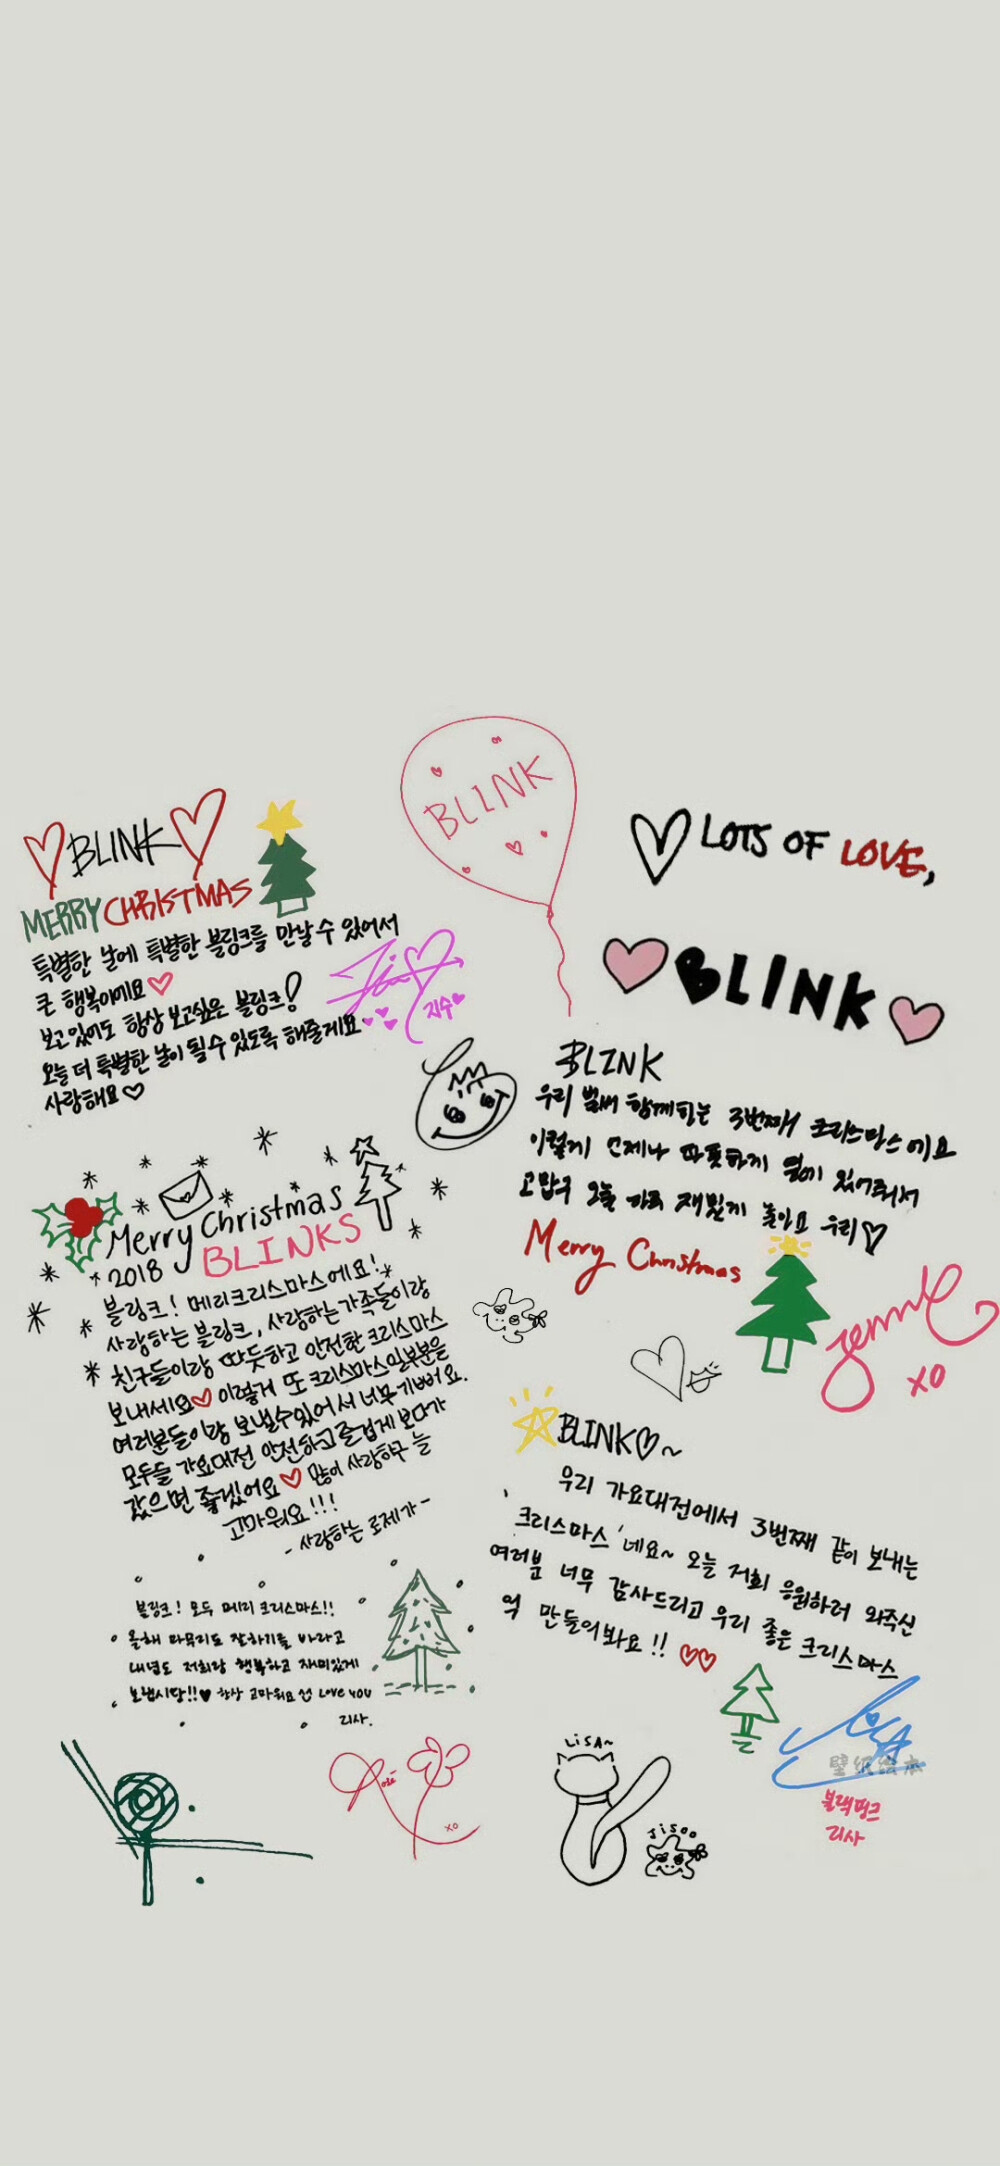 BLINK
BLINK
MERRY CHRISTMAS
특별한 날에 특별한 블링크를 만날 수 있어서
큰 행복이에요♡
보고있어도 항상 보고싶은 블링크!
오늘 더 특별한 날이 될 수 있도록 해줄게요
사랑해요♡
지수
LOTS OF LOVE,
BLINK
BLINK
우리 벌써 함께하는 3번째 크리스마스에요
이렇게 언제나 따뜻하게 옆에 있어줘서
고맙구 오늘 하루 재밌게 놀아요 우리♡
Merry Christmas
Jennie
XO
Merry Christmas
2018 BLINKS
블링크! 메리크리스마스에요!
사랑하는 블링크, 사랑하는가족들이랑
친구들이랑 따듯하고 안전한 크리스마스
보내세요♡ 이렇게 또 크리스마스일부분을
여러분들이랑 보낼수있어서 너무 기뻐요.
모두들 가요대전 안전하고 즐겁게 보다가
갔으면 좋겠어요♡ 많이 사랑하구 늘
고마워요!!!
- 사랑하는 로제가 -
BLINK♡~
우리 가요대전에서 3번째 같이 보내는
크리스마스 네요~ 오늘 저희 응원하러 와주신
여러분 너무 감사드리고 우리 좋은 크리스마스
억 만들어봐요!! ♡♡
블랙핑크
리사
블링크! 모두 메리 크리스마스!!
올해 마무리도 잘하기를 바라고
내년도 저희랑 행복하고 재미있게
보냅시당!!♥ 항상 고마워요 Love you
리사.
Rosé
XO
LiSA~
JiSOO
壁纸绘本